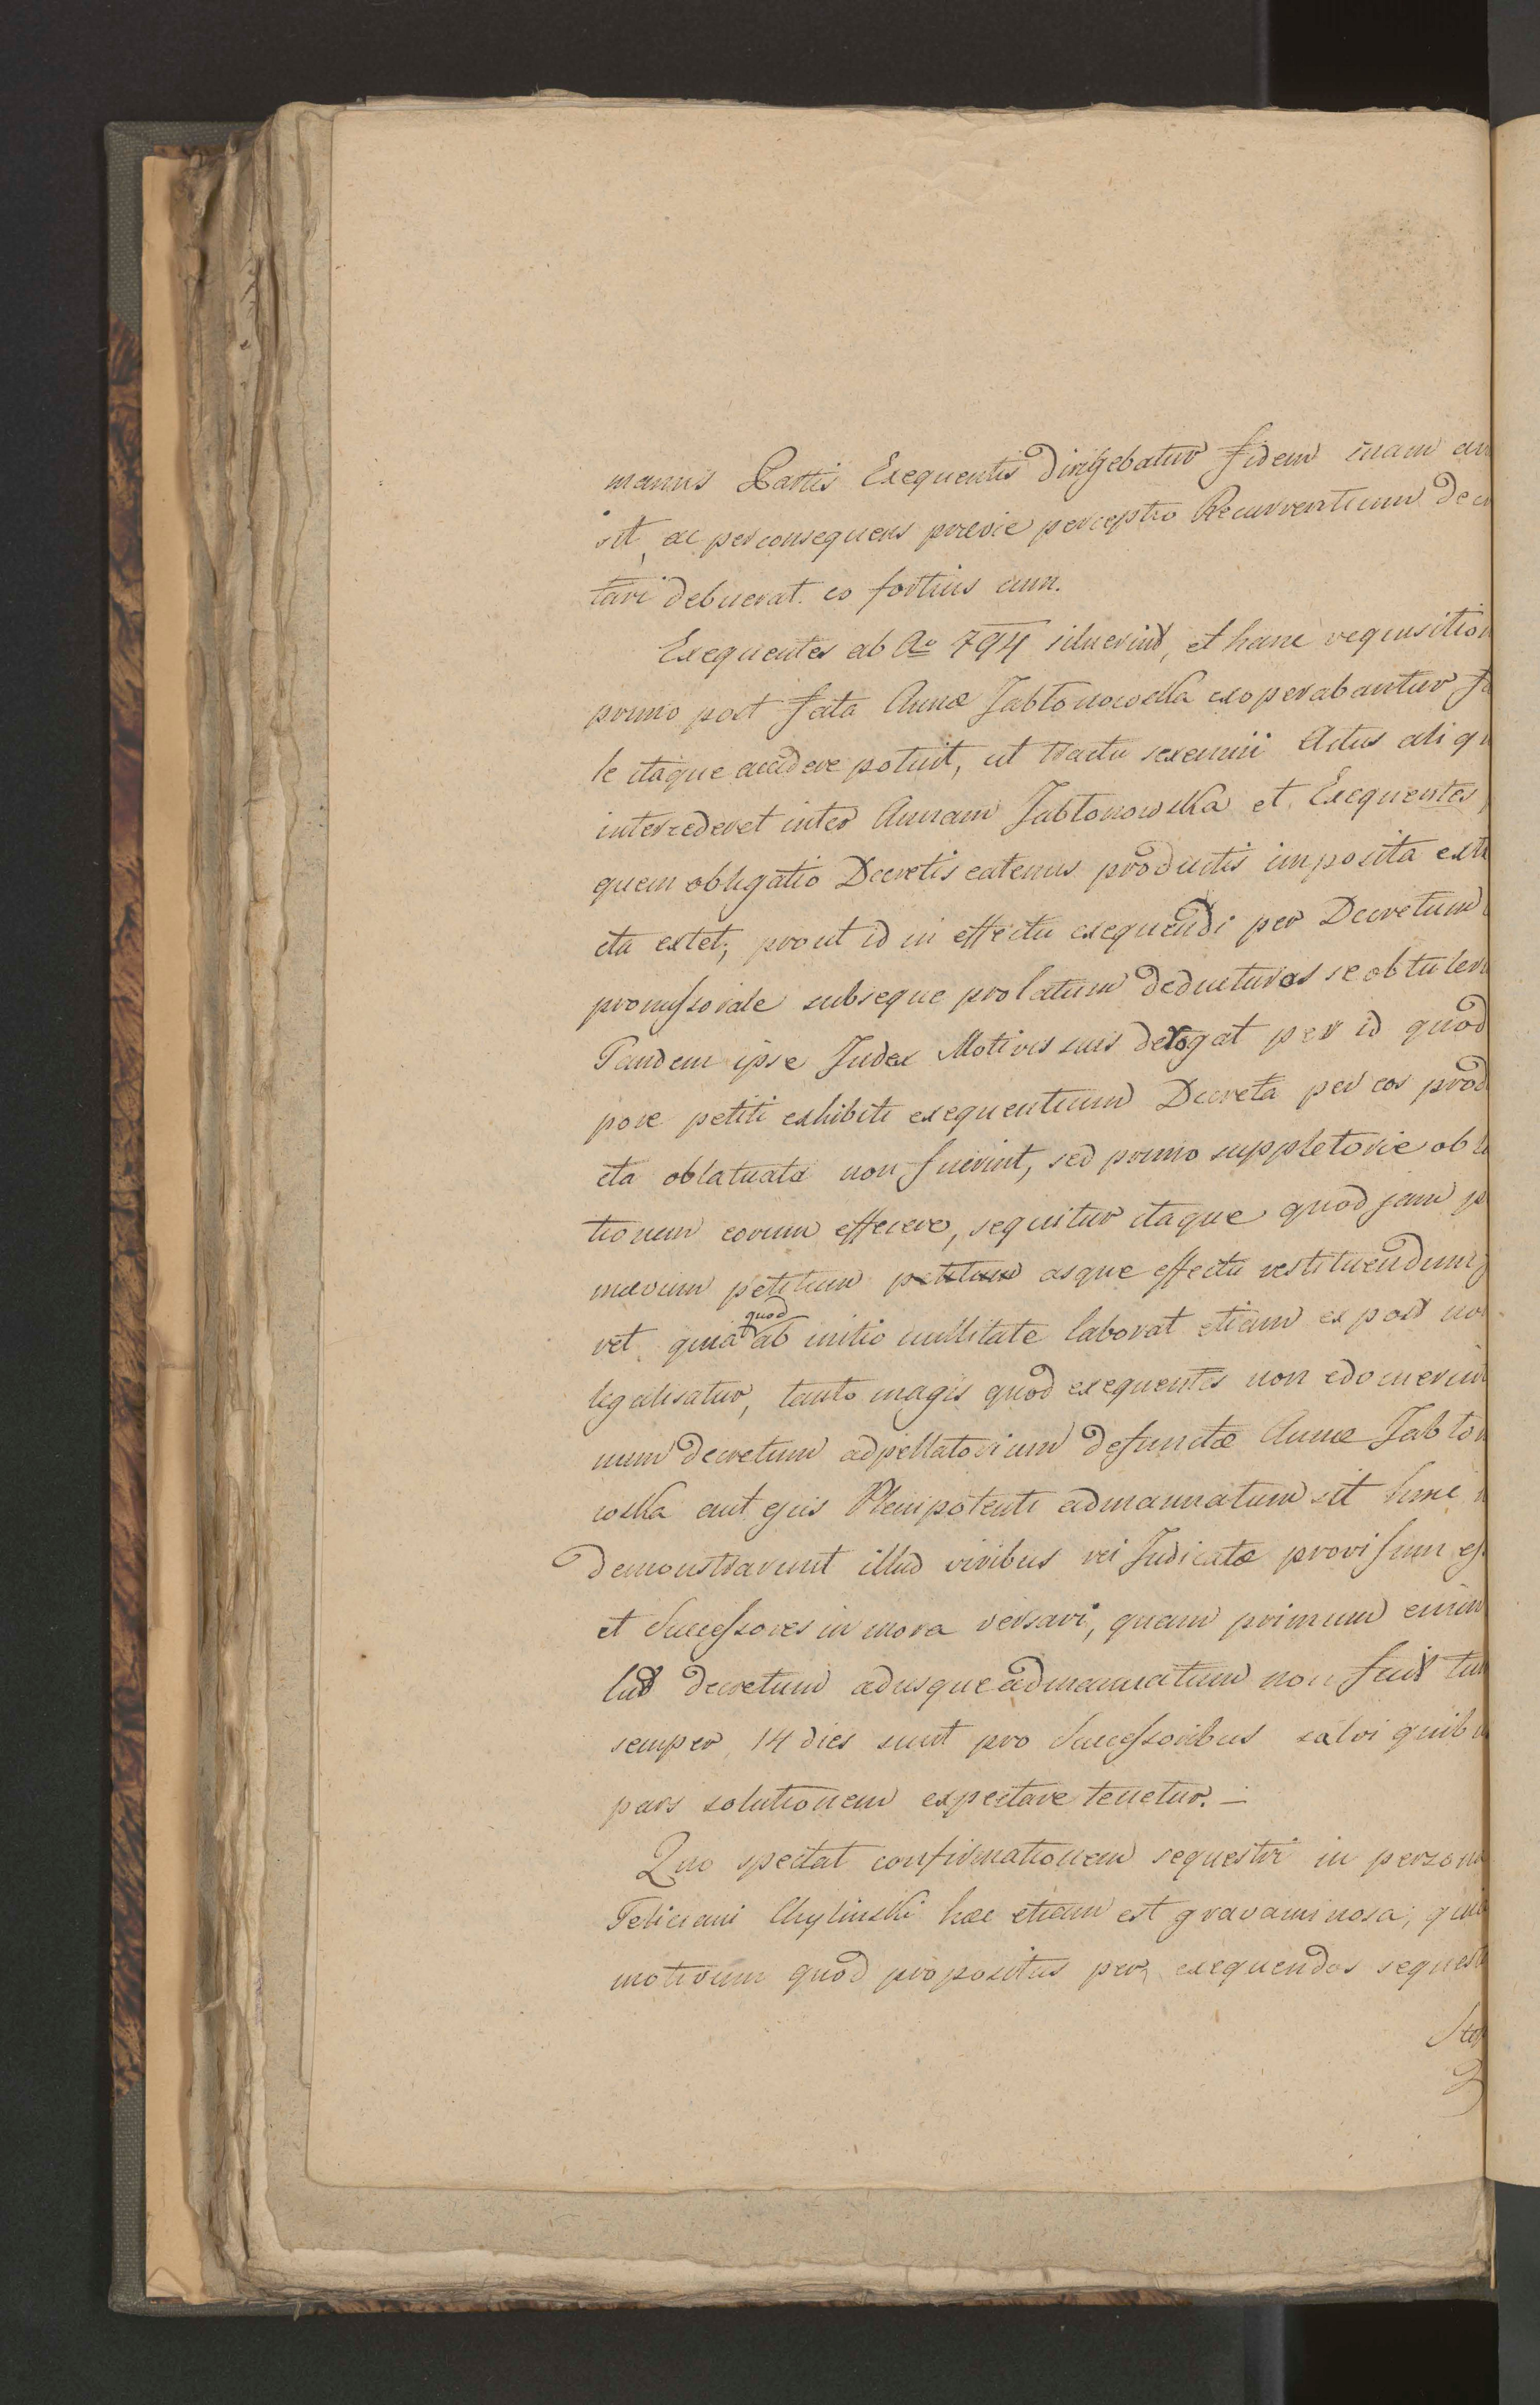 manus Partis Exequentis dirigebatur fidem suam
sit, ac per consequens previe perceptio Recurrentium
tari debuerat. eo fortius cum.
Exequentes ab Ao 794 siluerint, et hanc requisition
primo post fata Annæ Jabłonowska exoperabantur
le itaque accidere potuit, ut tractu sexennii Actus aliqu
intercederet inter Annam Jabłonowska et Exequentes
quem obligatio Decretis eatenus productis imposita exti
cta extet, prout id in effectu exequendi per Decretum
promissoriale subseque prolatum deducturos se obtuler
Tandem ipse Judex Motivis suis derogat per id quod
pore petiti exhibiti exequentium Decreta per eos prod
cta oblatuata non fuerint, sed primo suppletorie ob
tionem eorum effecere, sequitur itaque quod jam
mævum petitum petitum asque effectu restituendum
ret. quia quod ab initio nullitate laborat etiam ex post no
legalisatur, tanto magis quod exequentes non edocuerint
num decretum adpellatorium defunctæ Annæ Jabłon
wska aut ejus Plenipotenti admanuatum sit hinc
demonstrarunt illud viribus rei Judicatæ provisum
et Successores in mora versari, quam primum enim
lud decretum adusque admanuatum non fuit
semper 14 dies sunt pro Successoribus salvi quibu
pars solutionem expectare tenetur. —
Quo spectat confirmationem sequestri in person
Feliciani Chylinski hæc etiam est gravaminosa, quia
motivum quod propositus per exequendos sequest